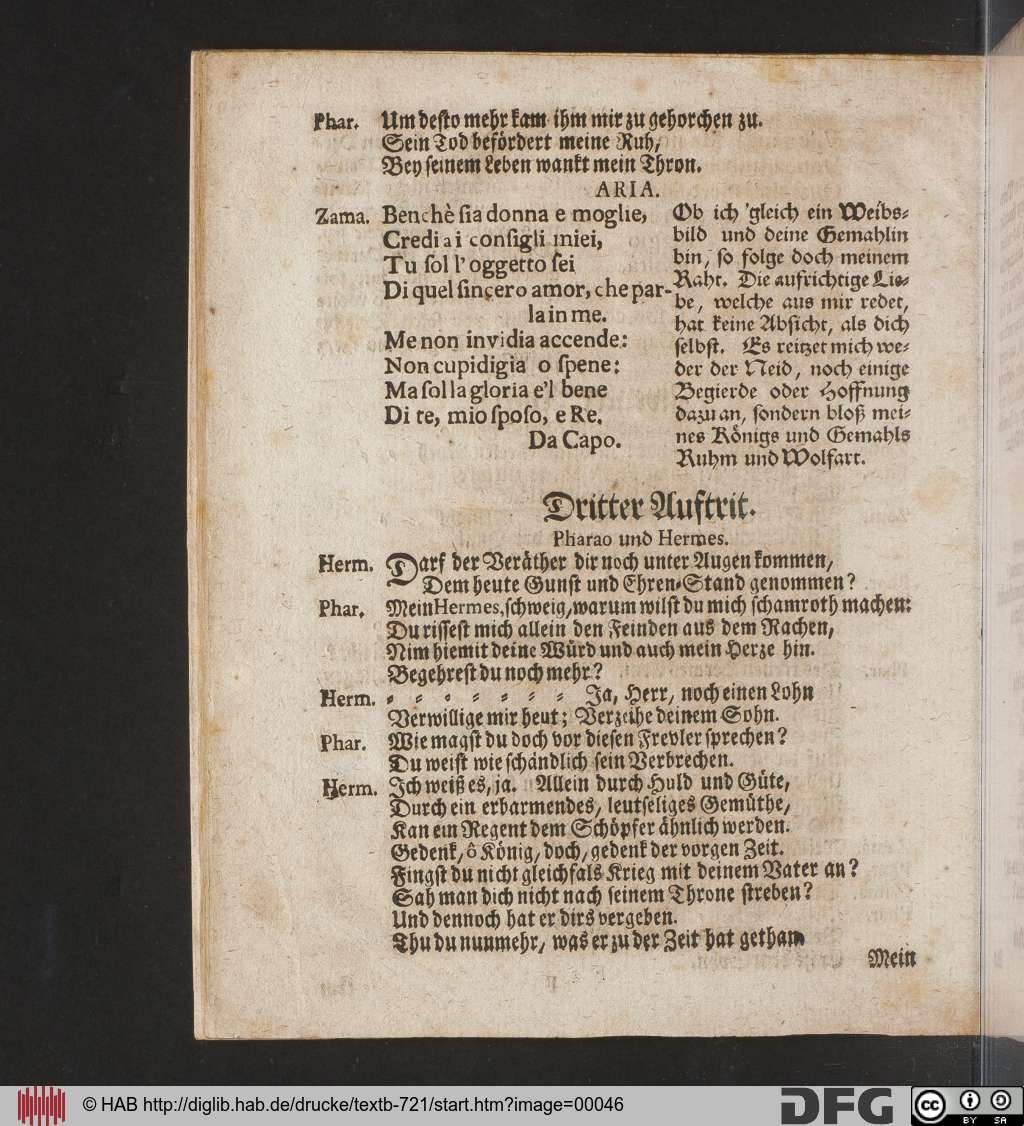 Phar. Um desto mehr kam ihm mir zu gehorchen zu.
Sein Tod befördert meine Ruh,
Bey seinem Leben wankt mein Thron.
ARIA.
Zama. Benchè sia donna e moglie,
Credi a i consigli miei,
Tu sol l'oggetto sei
Di quel sincero amor, che par-
la in me.
Me non invidia accende:
Non cupidigia o spene:
Ma sol la gloria e'l bene
Di te, mio sposo, e Re.
Da Capo.
Ob ich 'gleich ein Weibs-
bild und deine Gemahlin
bin, so folge doch meinem
Raht. Die aufrichtige Lie-
be, welche aus mir redet,
hat keine Absicht, als dich
selbst. Es reitzet mich we-
der der Neid, noch einige
Begierde oder Hoffnung
dazu an, sondern bloß mei-
nes Königs und Gemahls
Ruhm und Wolfart.
Dritter Auftrit.
Pharao und Hermes.
Herm. Darf der Veräther dir noch unter Augen kommen,
Dem heute Gunst und Ehren-Stand genommen?
Phar. Mein Hermes, schweig, warum wilst du mich schamroth machen:
Du rissest mich allein den Feinden aus dem Rachen,
Nim hiemit deine Würd und auch mein Herze hin.
Begehrest du noch mehr?
Herm. - - - - - - - Ja, Herr, noch einen Lohn
Verwillige mir heut; Verzeihe deinem Sohn.
Phar. Wie magst du doch vor diesen Frevler sprechen?
Du weist wie schändlich sein Verbrechen.
Herm. Ich weiß es, ja. Allein durch Huld und Güte,
Durch ein erbarmendes, leutseliges Gemüthe,
Kan ein Regent dem Schöpfer ähnlich werden.
Gedenk, ô König, doch, gedenk der vorgen Zeit.
Fingst du nicht gleichfals Krieg mit deinem Vater an?
Sah man dich nicht nach seinem Throne streben?
Und dennoch hat er dirs vergeben.
Thu du nunmehr, was er zu der Zeit hat gethan
Mein
© HAB http://diglib.hab.de/drucke/textb-721/start.htm?image=00046
DFG
cc BY SA